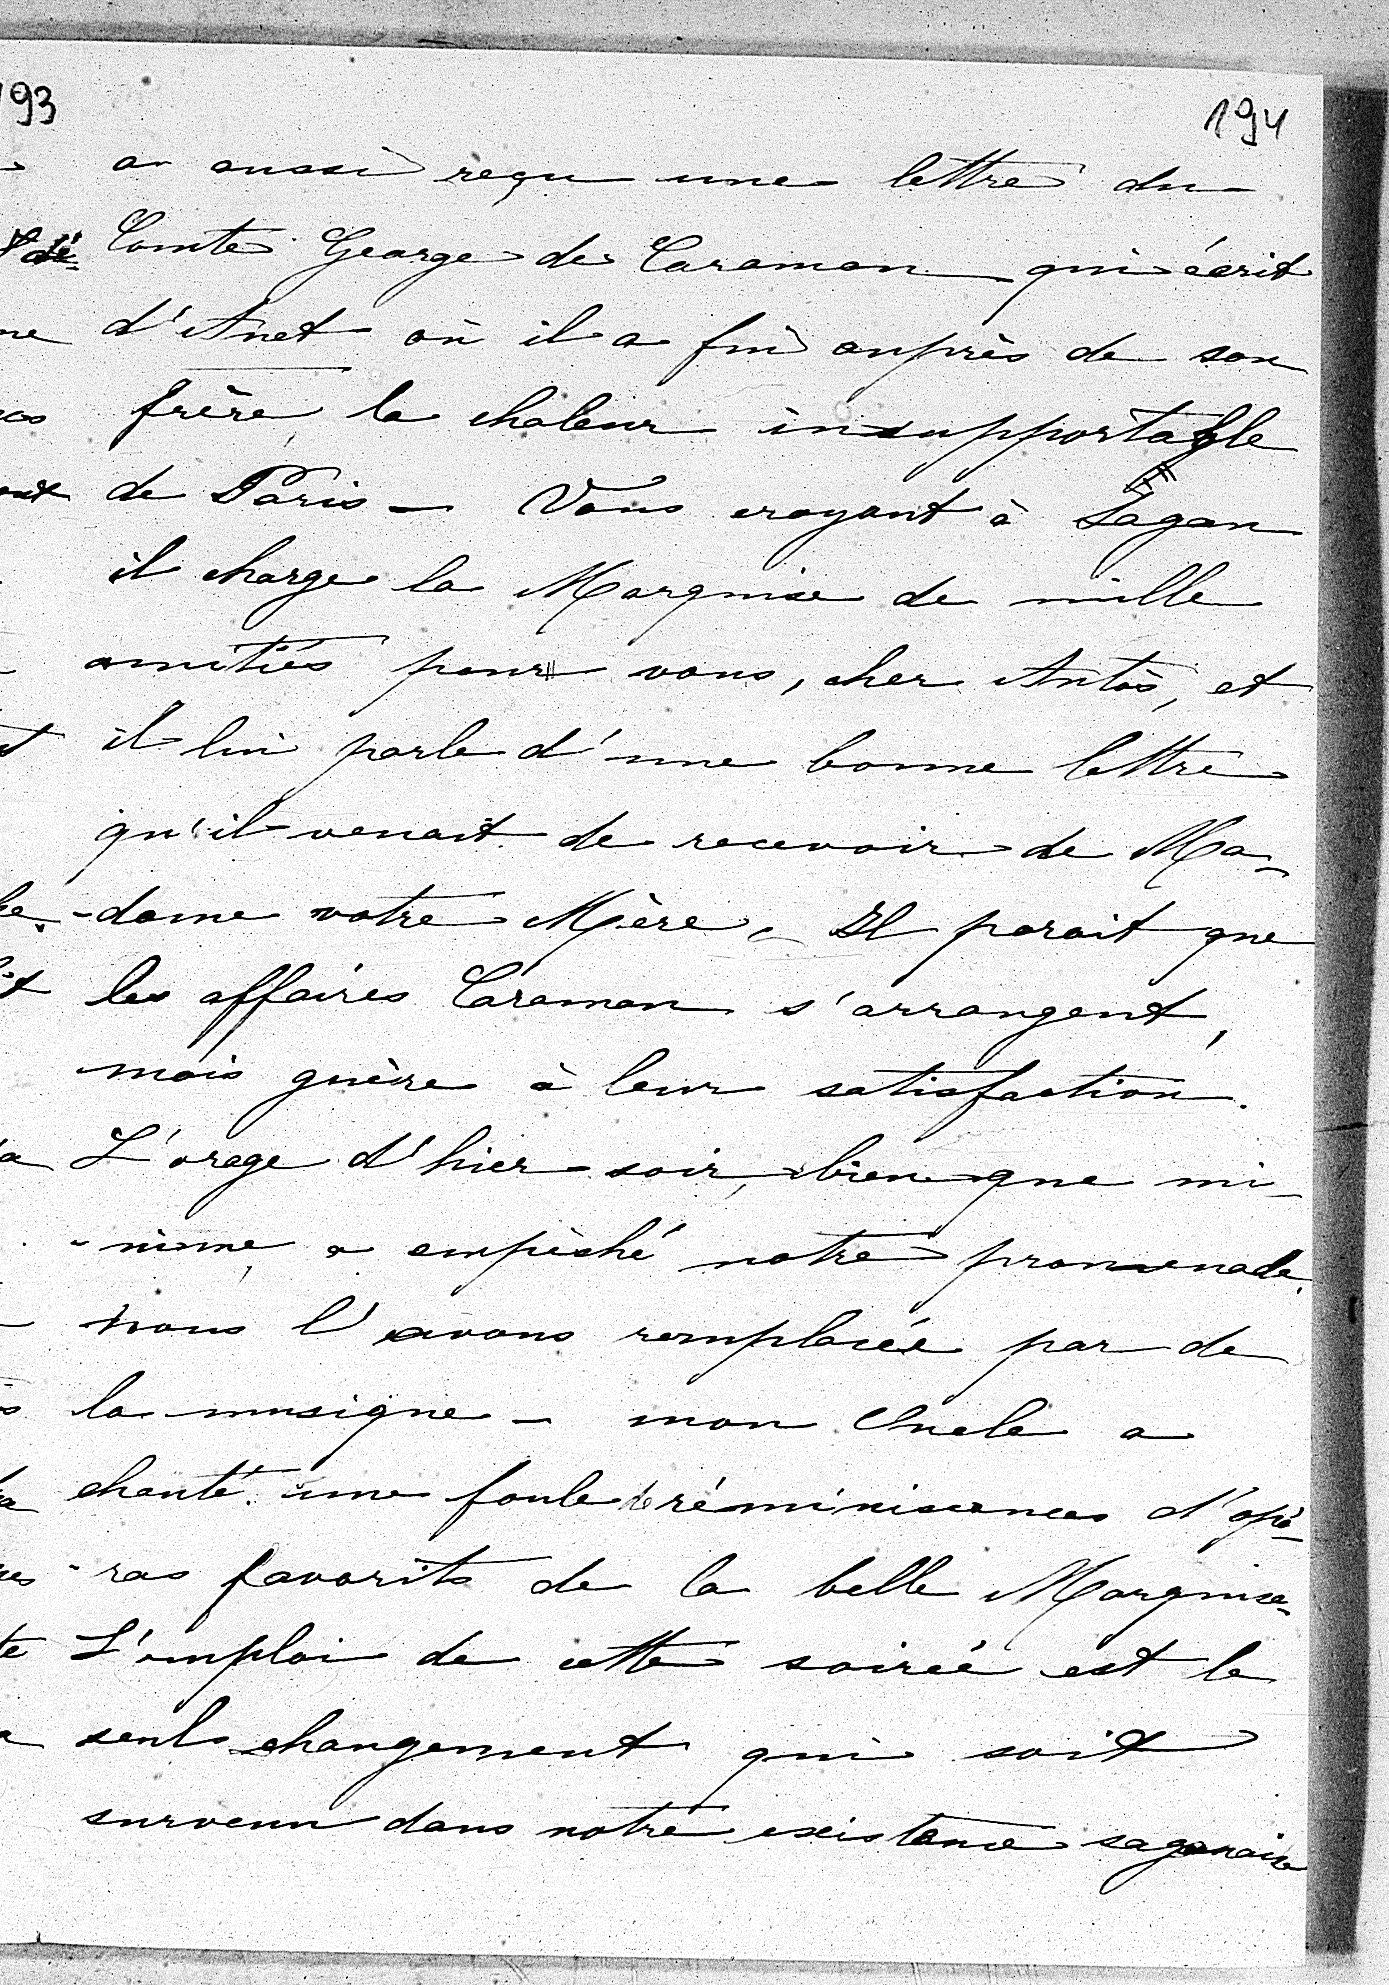 193
194
a aussi reçu une lettre du
Comte George de Caraman qui écrit
d'Anet où il a fui auprès de son
frère la chaleur insupportable
de Paris — Vous croyant à Sagan
il charge la Marquise de mille
amitiés pour vous, cher Antos, et
il lui parle d'une bonne lettre
qu'il venait de recevoir de Ma-
-dame votre Mère. Il parait que
les affaires Caraman s'arrangent,
mais guère à leur satisfaction.
L'orage d'hier-soir, bien que mi-
-nime, a empêché notre promenade.
Nous l'avons remplacée par de
la musique — mon Oncle a
chanté une foule de réminiscences d'opé-
-ras favorits de la belle Marquise.
L'emploi de cette soirée est le
seul changement qui soit
survenu dans notre existence saganaise